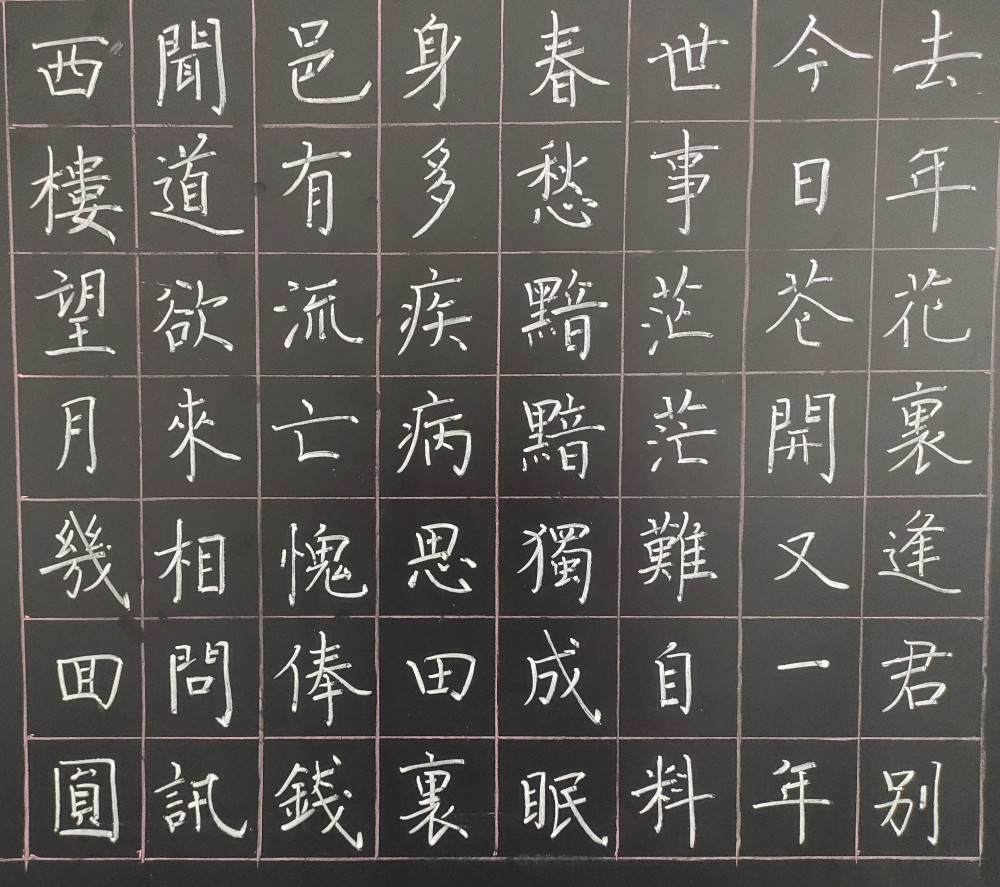 去年花裏逢君别
今日花開又一年
世事茫茫難自料
春愁黯黯獨成眠
身多疾病思田裏
邑有流亡愧俸錢
聞道欲來相問訊
西樓望月幾囬圓